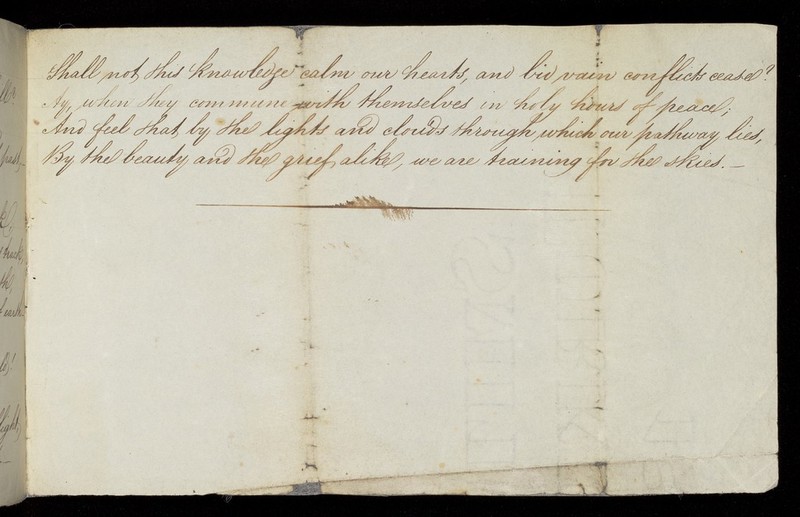 Shall not this knowledge calm our hearts, and bid vain conflicts cease?
Ay, when they commune with themselves in holy hours of peace;
And feel that by the lights and clouds through which our pathway lies,
By the beauty and the grief alike, we are training for the skies. —